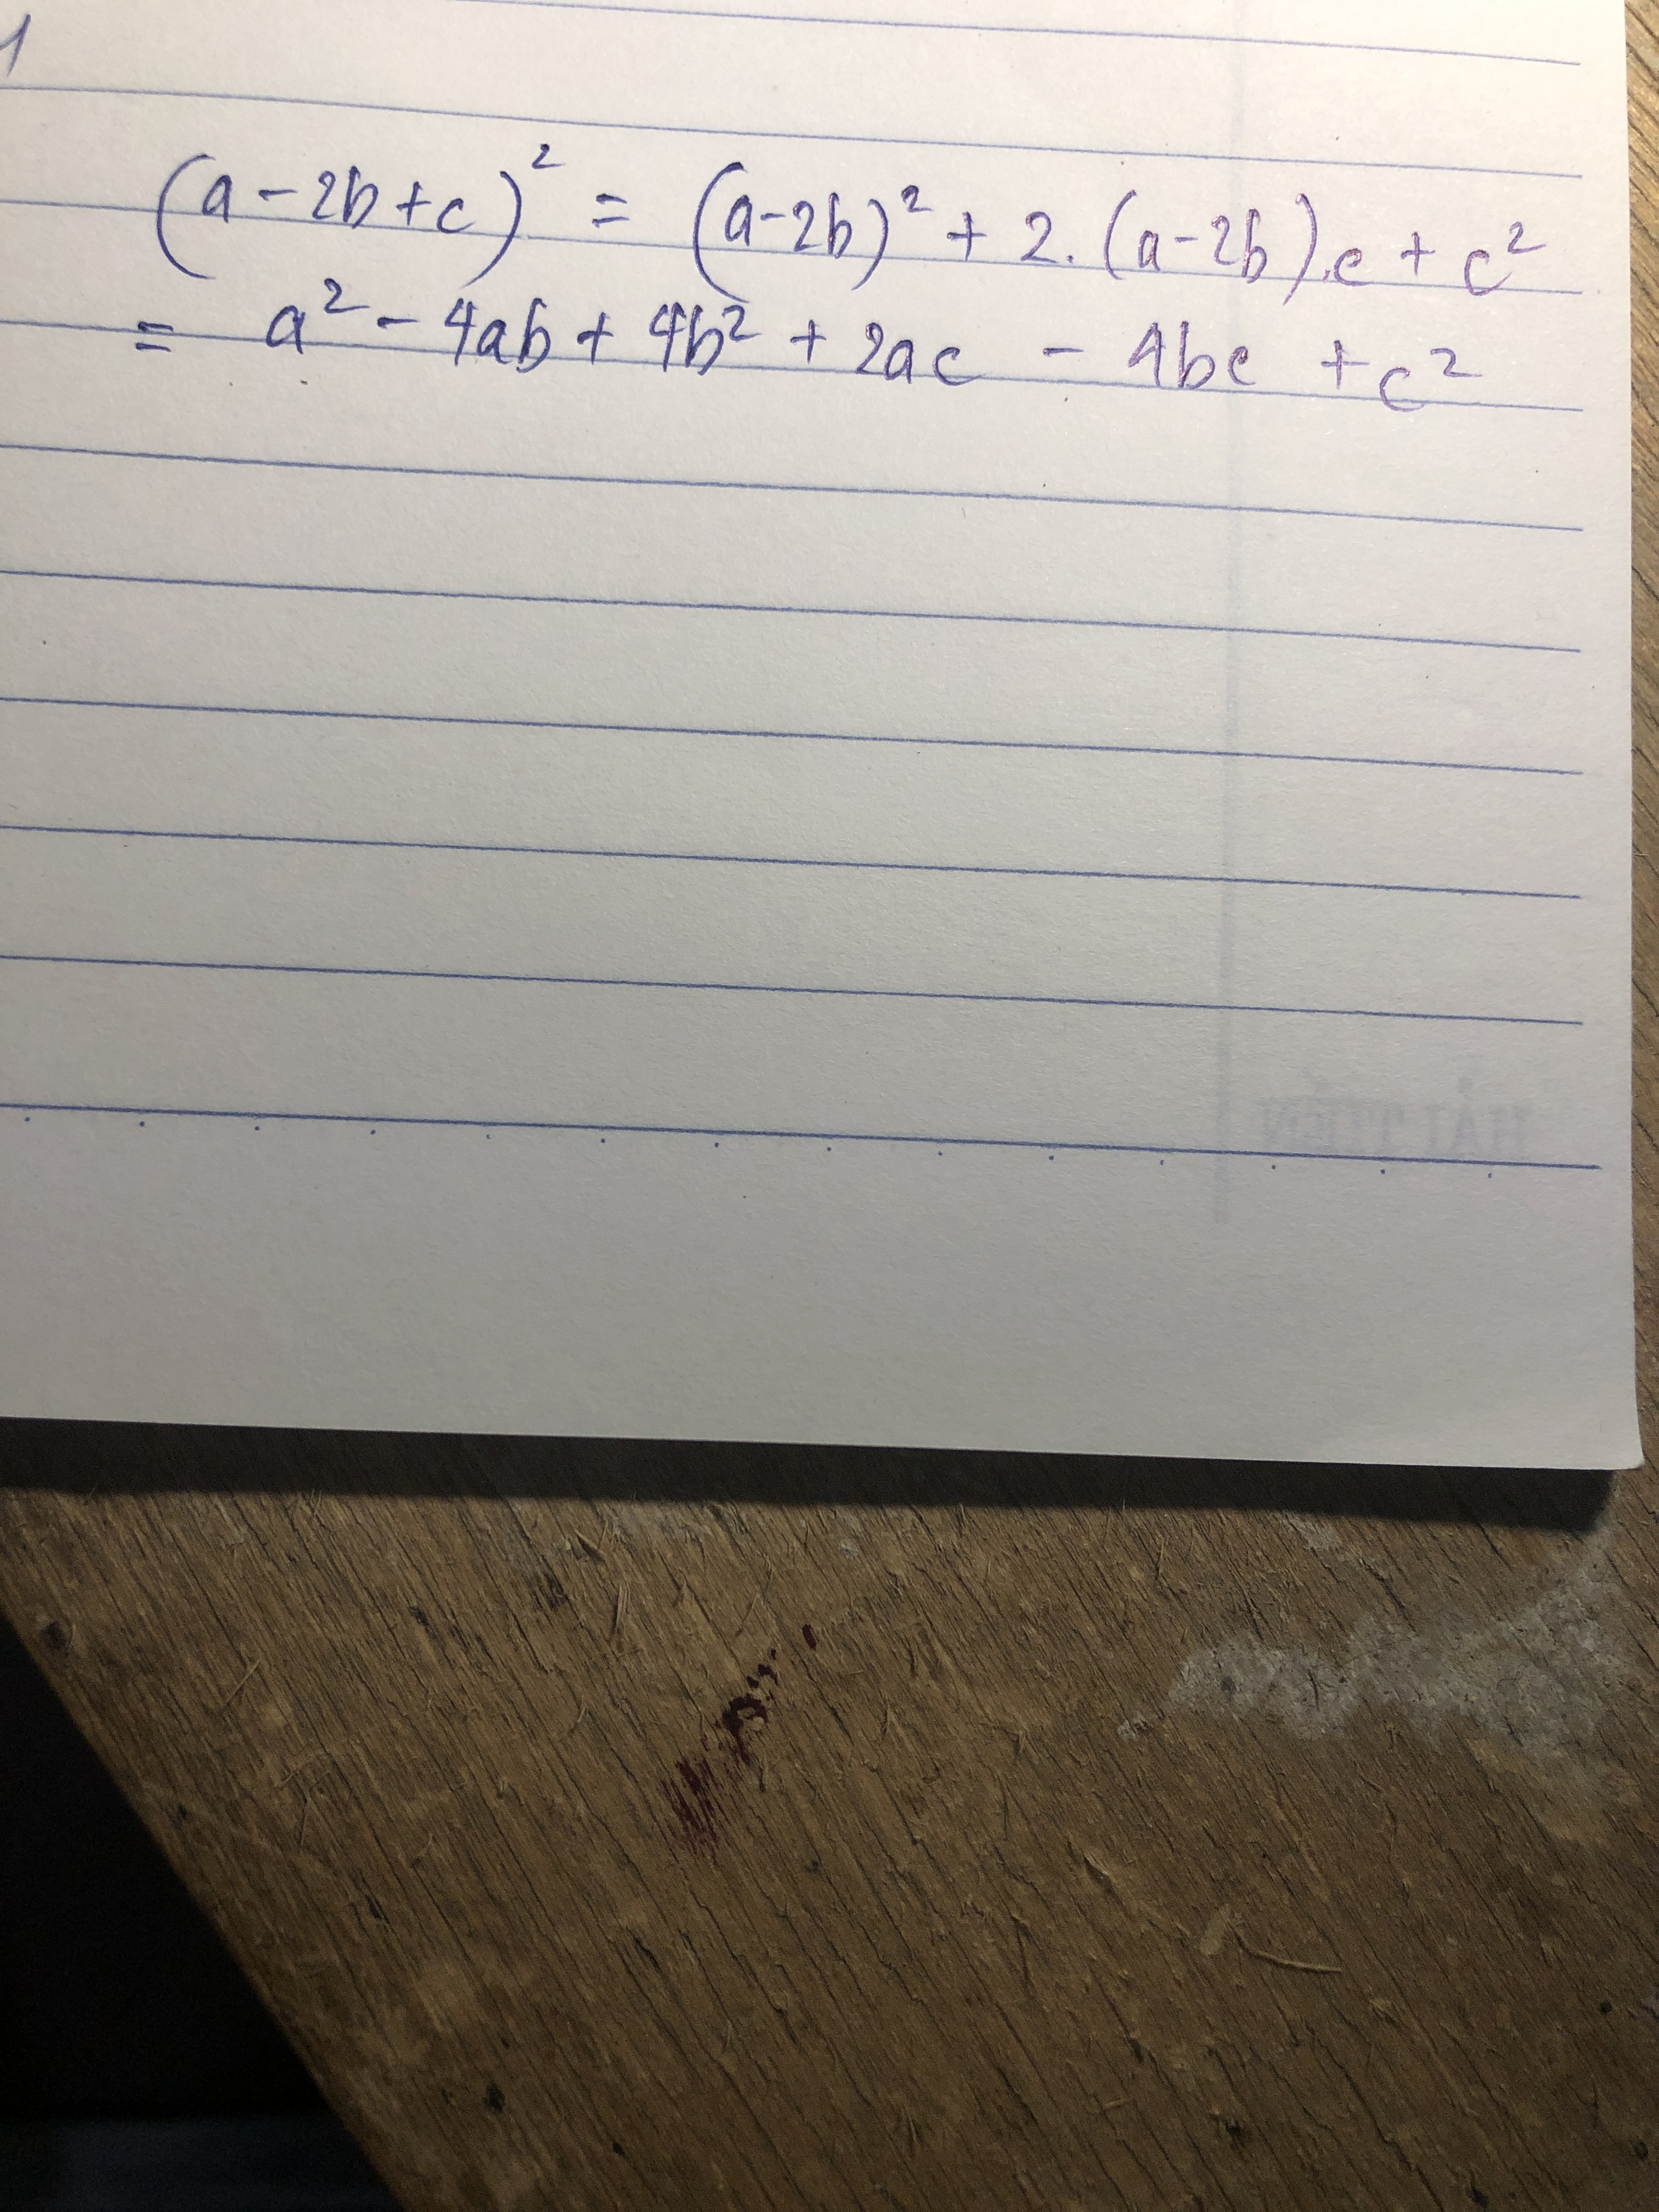 1
(a-2b+c)² = (a-2b)² + 2.(a-2b).c + c²
= a² - 4ab + 4b² + 2ac - 4bc + c²
HẢI TIẾN